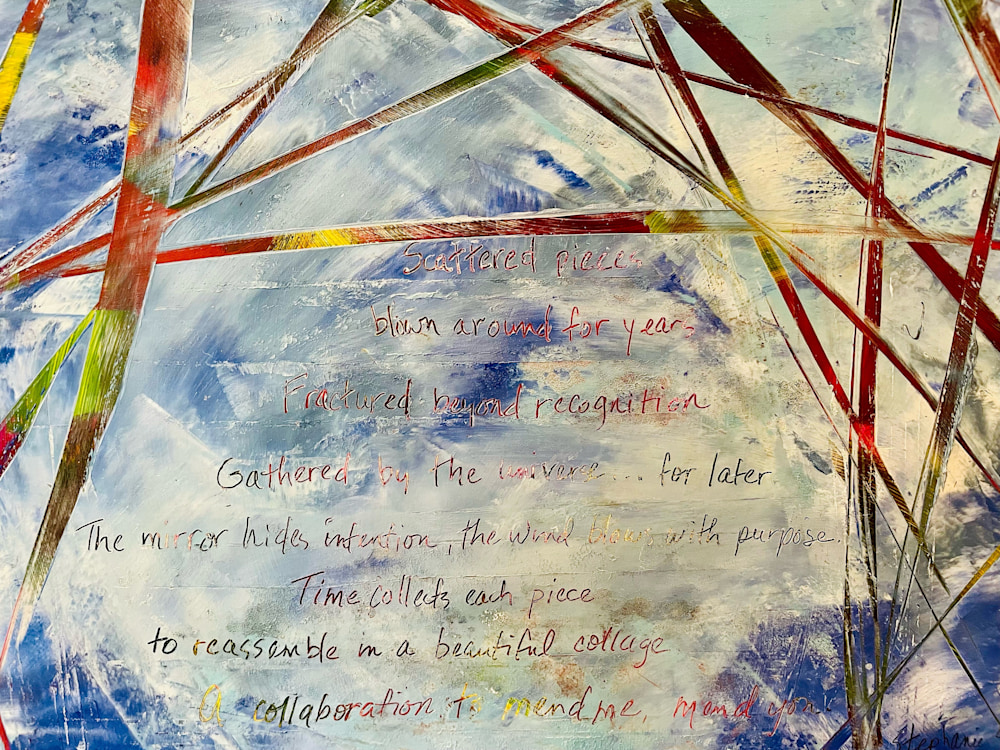 Scattered pieces
blown around for years
Fractured beyond recognition
Gathered by the universe... for later
The mirror hides intention, the wind blows with purpose.
Time collects each piece
to reassemble in a beautiful collage
A collaboration to mend me, mend you